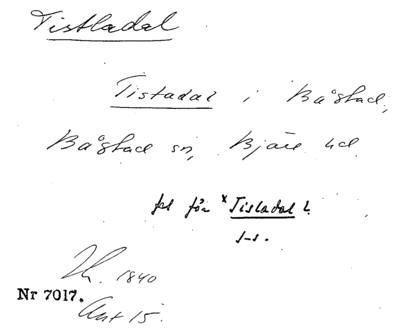 Tistladal
Tistadal i Båstad,
Båstad sn, Bjäre hd
fel för x Tistladal?
1840
Nr 7017.
Ant 15.